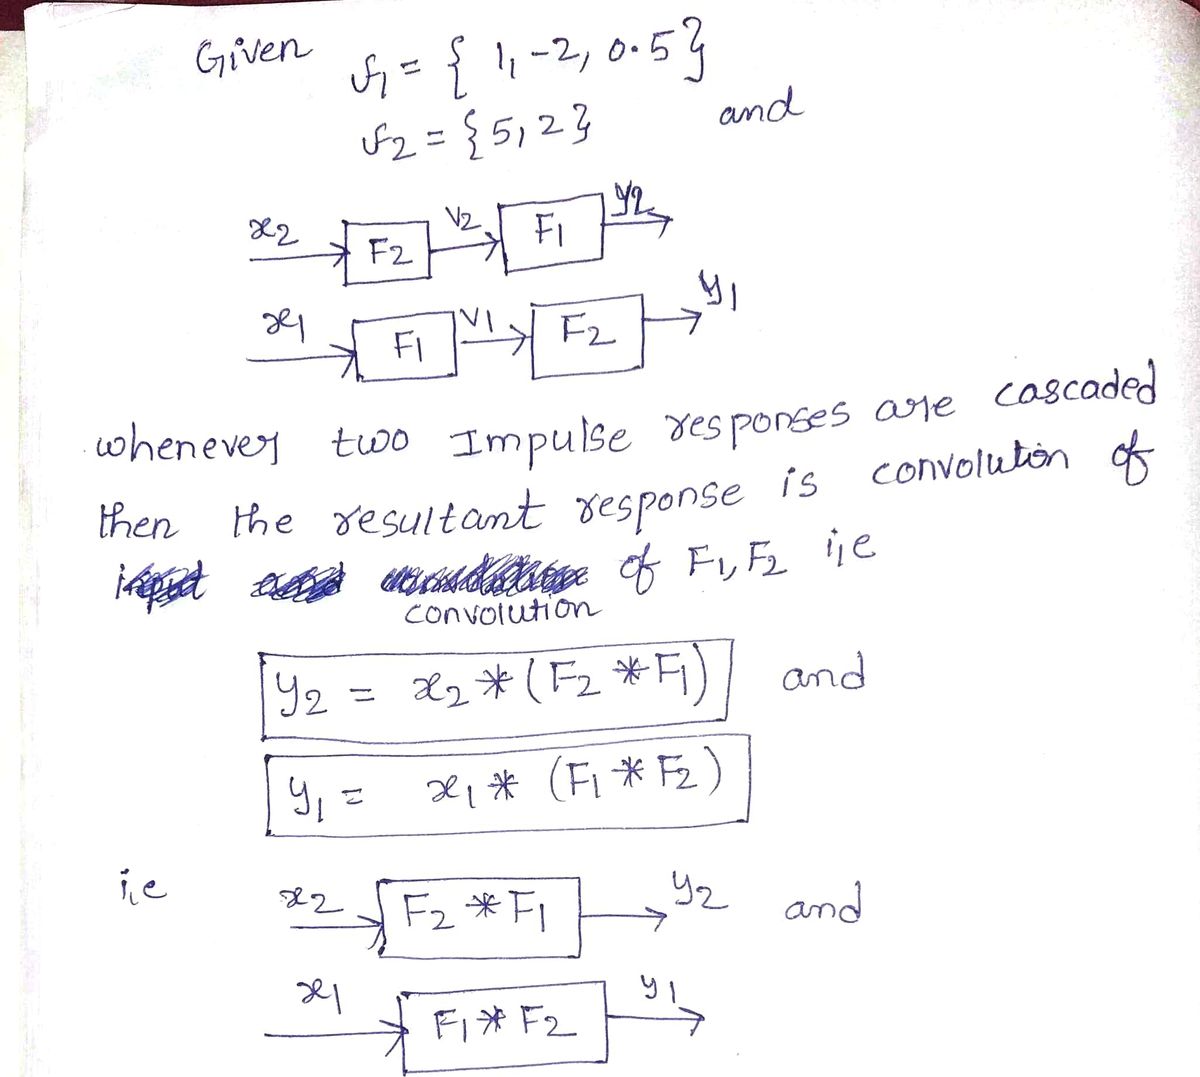 Given f1 = { 1, -2, 0.5}
f2 = {5, 2} and
x2 F2 V2 F1 y2
x1 F1 V1 F2 y1
whenever two Impulse responses are cascaded
then the resultant response is convolution of
of F1, F2 i,e
convolution
y2 = x2 * (F2 * F1) and
y1 = x1 * (F1 * F2)
i,e x2 F2 * F1 y2 and
x1 F1 * F2 y1